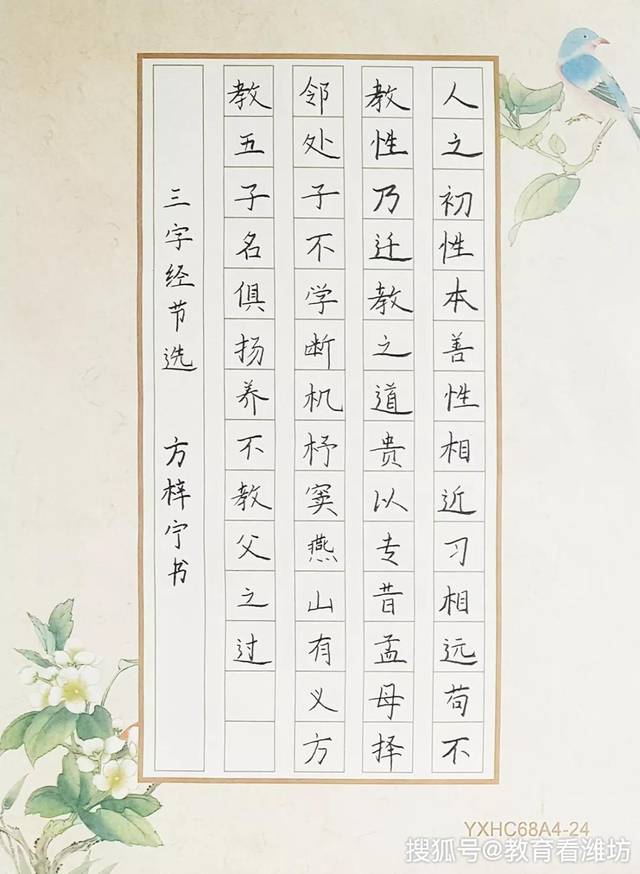 人之初性本善性相近习相远苟不
教性乃迁教之道贵以专昔孟母择
邻处子不学断机杼窦燕山有义方
教五子名俱扬养不教父之过
三字经节选 方梓宁书
YXHC68A4-24
搜狐号@教育看潍坊